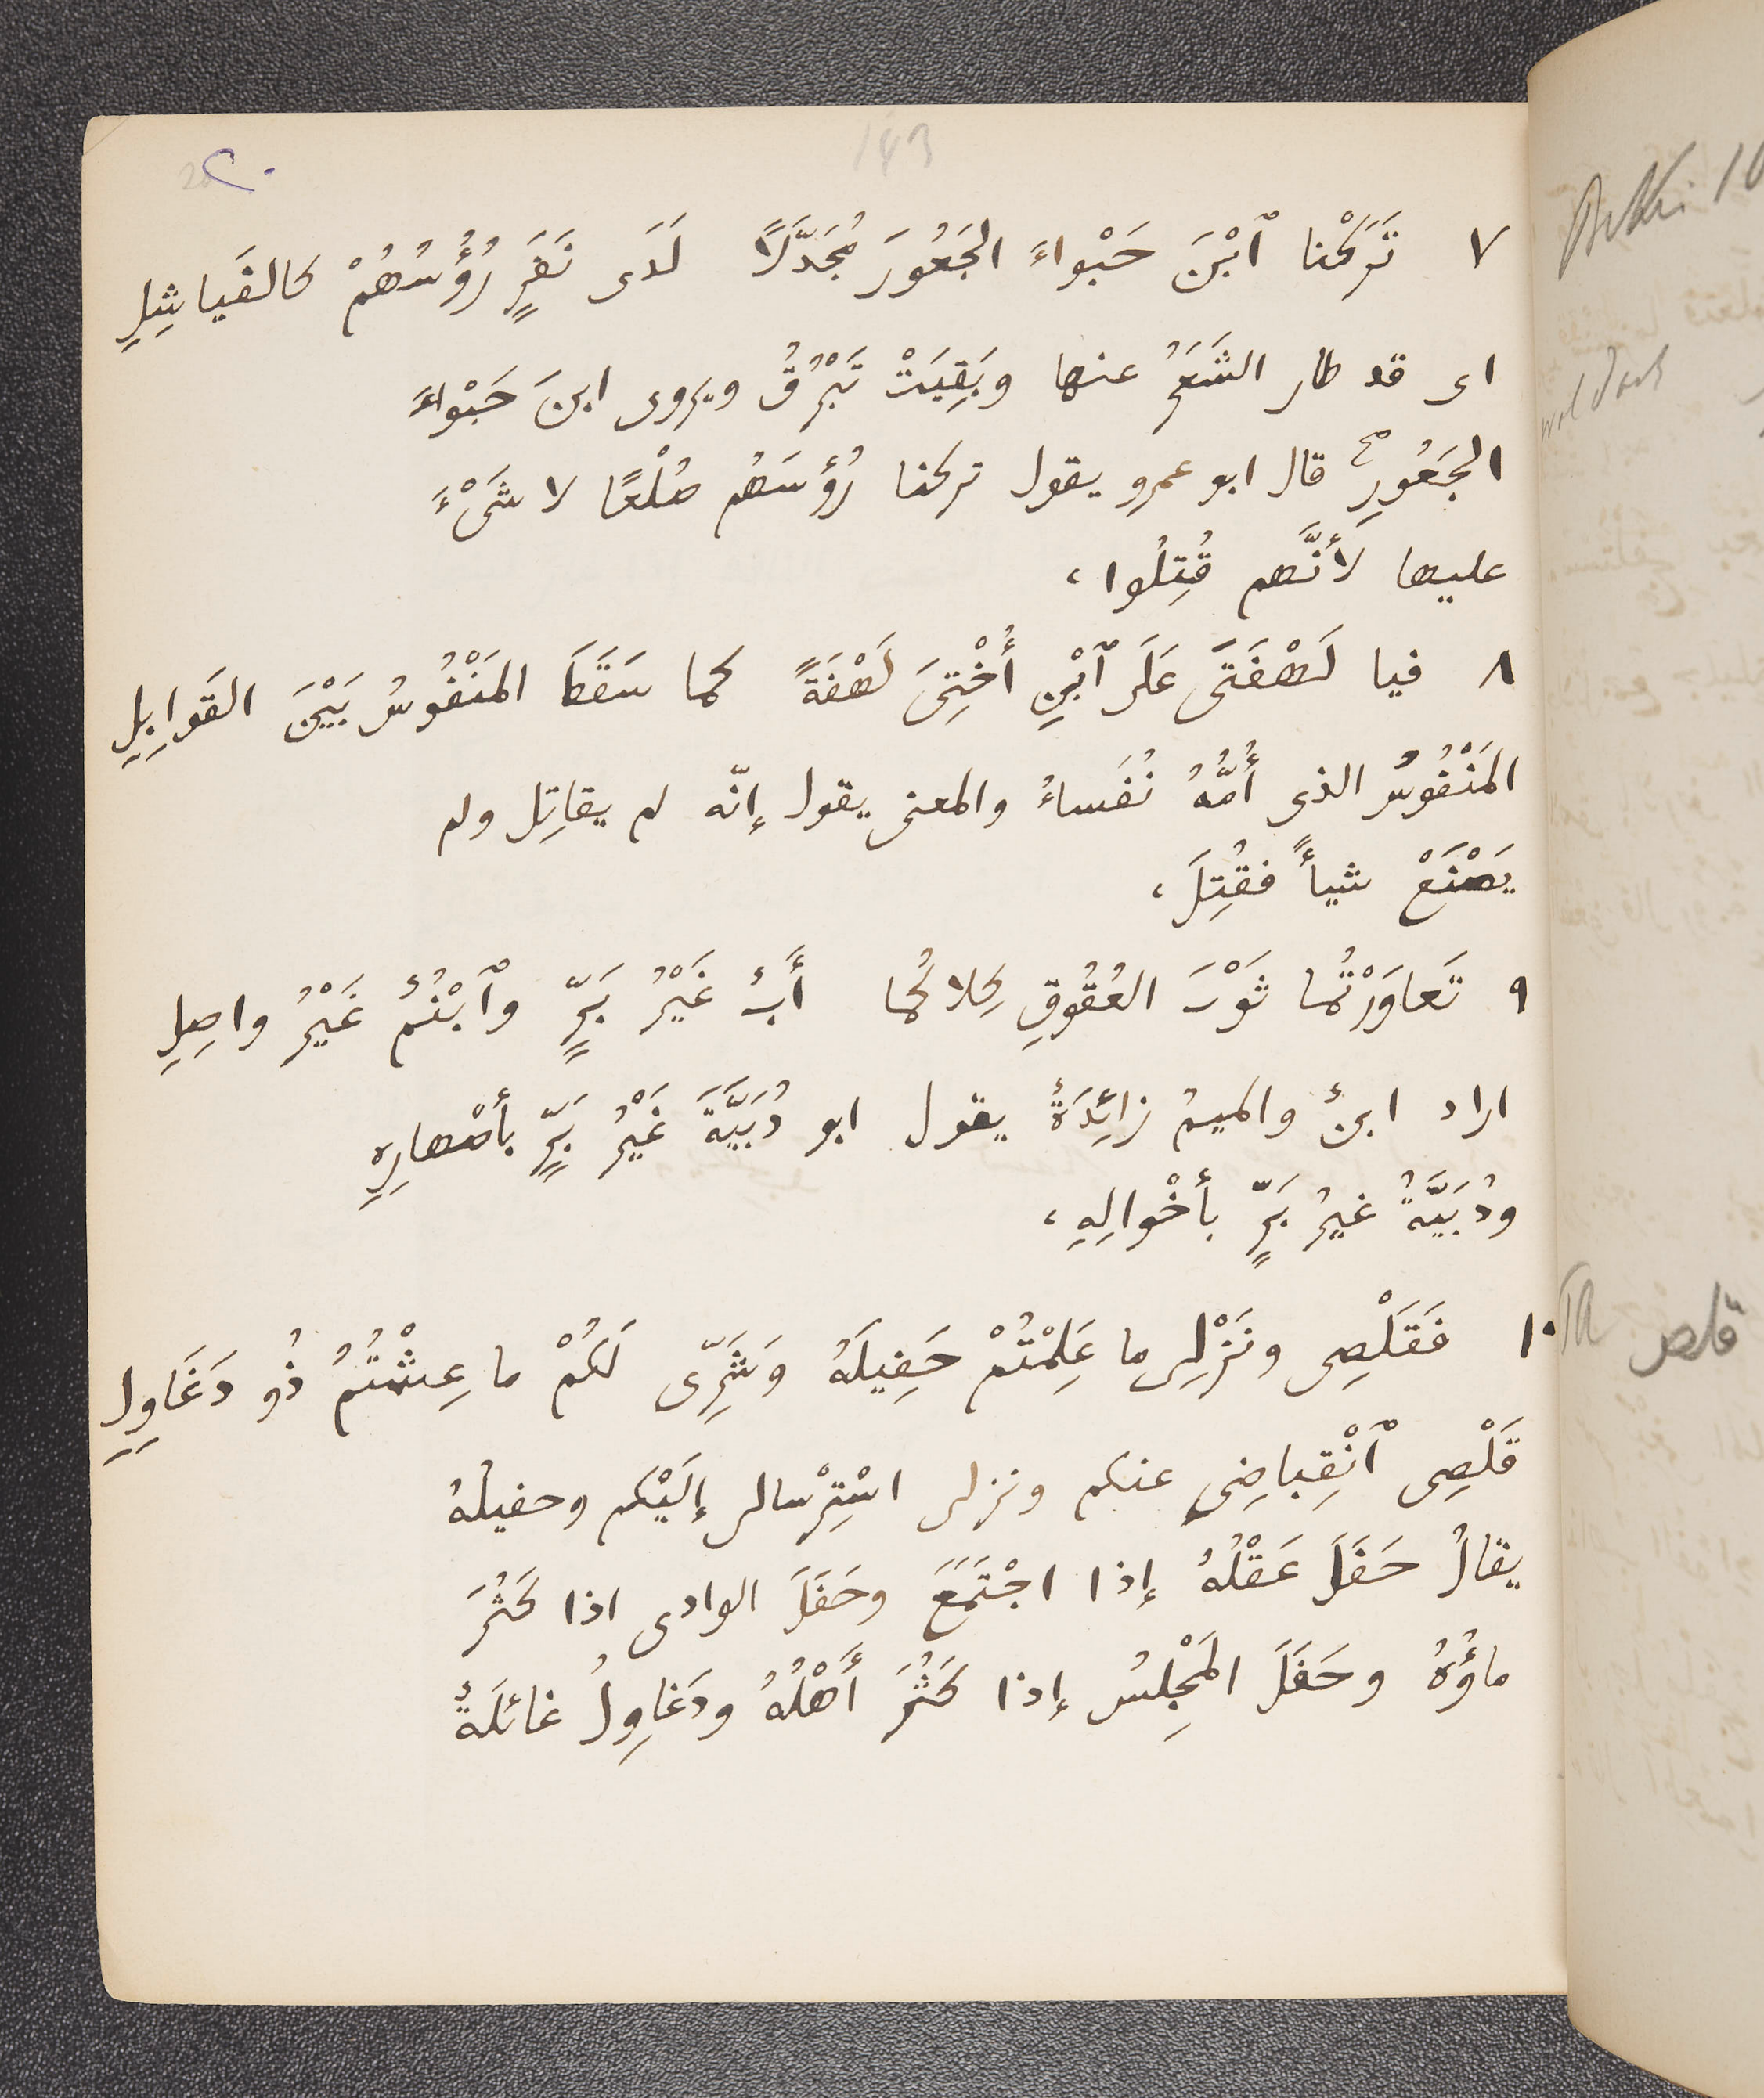 143
٢٠
٧ تَرَكْنا ٱبْنَ حَبْواءَ الجَعُورَ مُجَدَّلًا لَدَى نَفَرٍ رُؤُسُهُمْ كالفَياشِلِ
اى قد طار الشَعَرُ عنها وبَقِيَتْ تَبْرُقُ ويروى ابنَ حَبْواءَ
الجَعُورِ قال ابو عمرو يقول تركنا رُؤُسَهُم صُلْعًا لا شَىْءَ
عليها لأَنَّهم قُتِلُوا،
٨ فيا لَهْفَتَى عَلَى ٱبْنِ أُخْتِىَ لَهْفَةً كما سَقَطَ المَنْفُوسُ بَيْنَ القَوابِلِ
المَنْفُوسُ الذى أُمُّهُ نُفَساءُ والمعنى يقول إنّه لم يقاتِل ولم
يَصْنَعْ شيأً فقُتِلَ،
٩ تَعاوَرْتُما ثَوْبَ العُقُوقِ كِلاكُما أَبٌ غَيْرُ بَرٍّ وٱبْنُمٌ غَيْرُ واصِلِ
اراد ابنٌ والميمُ زائِدَةٌ يقول ابو دُبَيَّةَ غَيْرُ بَرٍّ بأصْهارِهِ
ودُبَيَّةُ غيرُ بَرٍّ بأخْوالِهِ،
١٠ فَقَلْصِى ونَزْلِى ما عَلِمْتُمْ حَفِيلَهُ وَشَرِّى لَكُمْ ما عِشْتُمُ ذُو دَغَاوِلِ
قَلْصِى ٱنْقِباضِى عنكم ونزلى اسْتِرْسالى إلَيْكم وحفيلُهُ
يقالُ حَفَلَ عَقْلُهُ إذا اجْتَمَعَ وحَفَلَ الوادى اذا كَثُرَ
ماؤُهُ وحَفَلَ المَجْلِسُ إذا كَثُرَ أَهْلُهُ ودَغاوِلُ غائلَةٌ
TA قلص